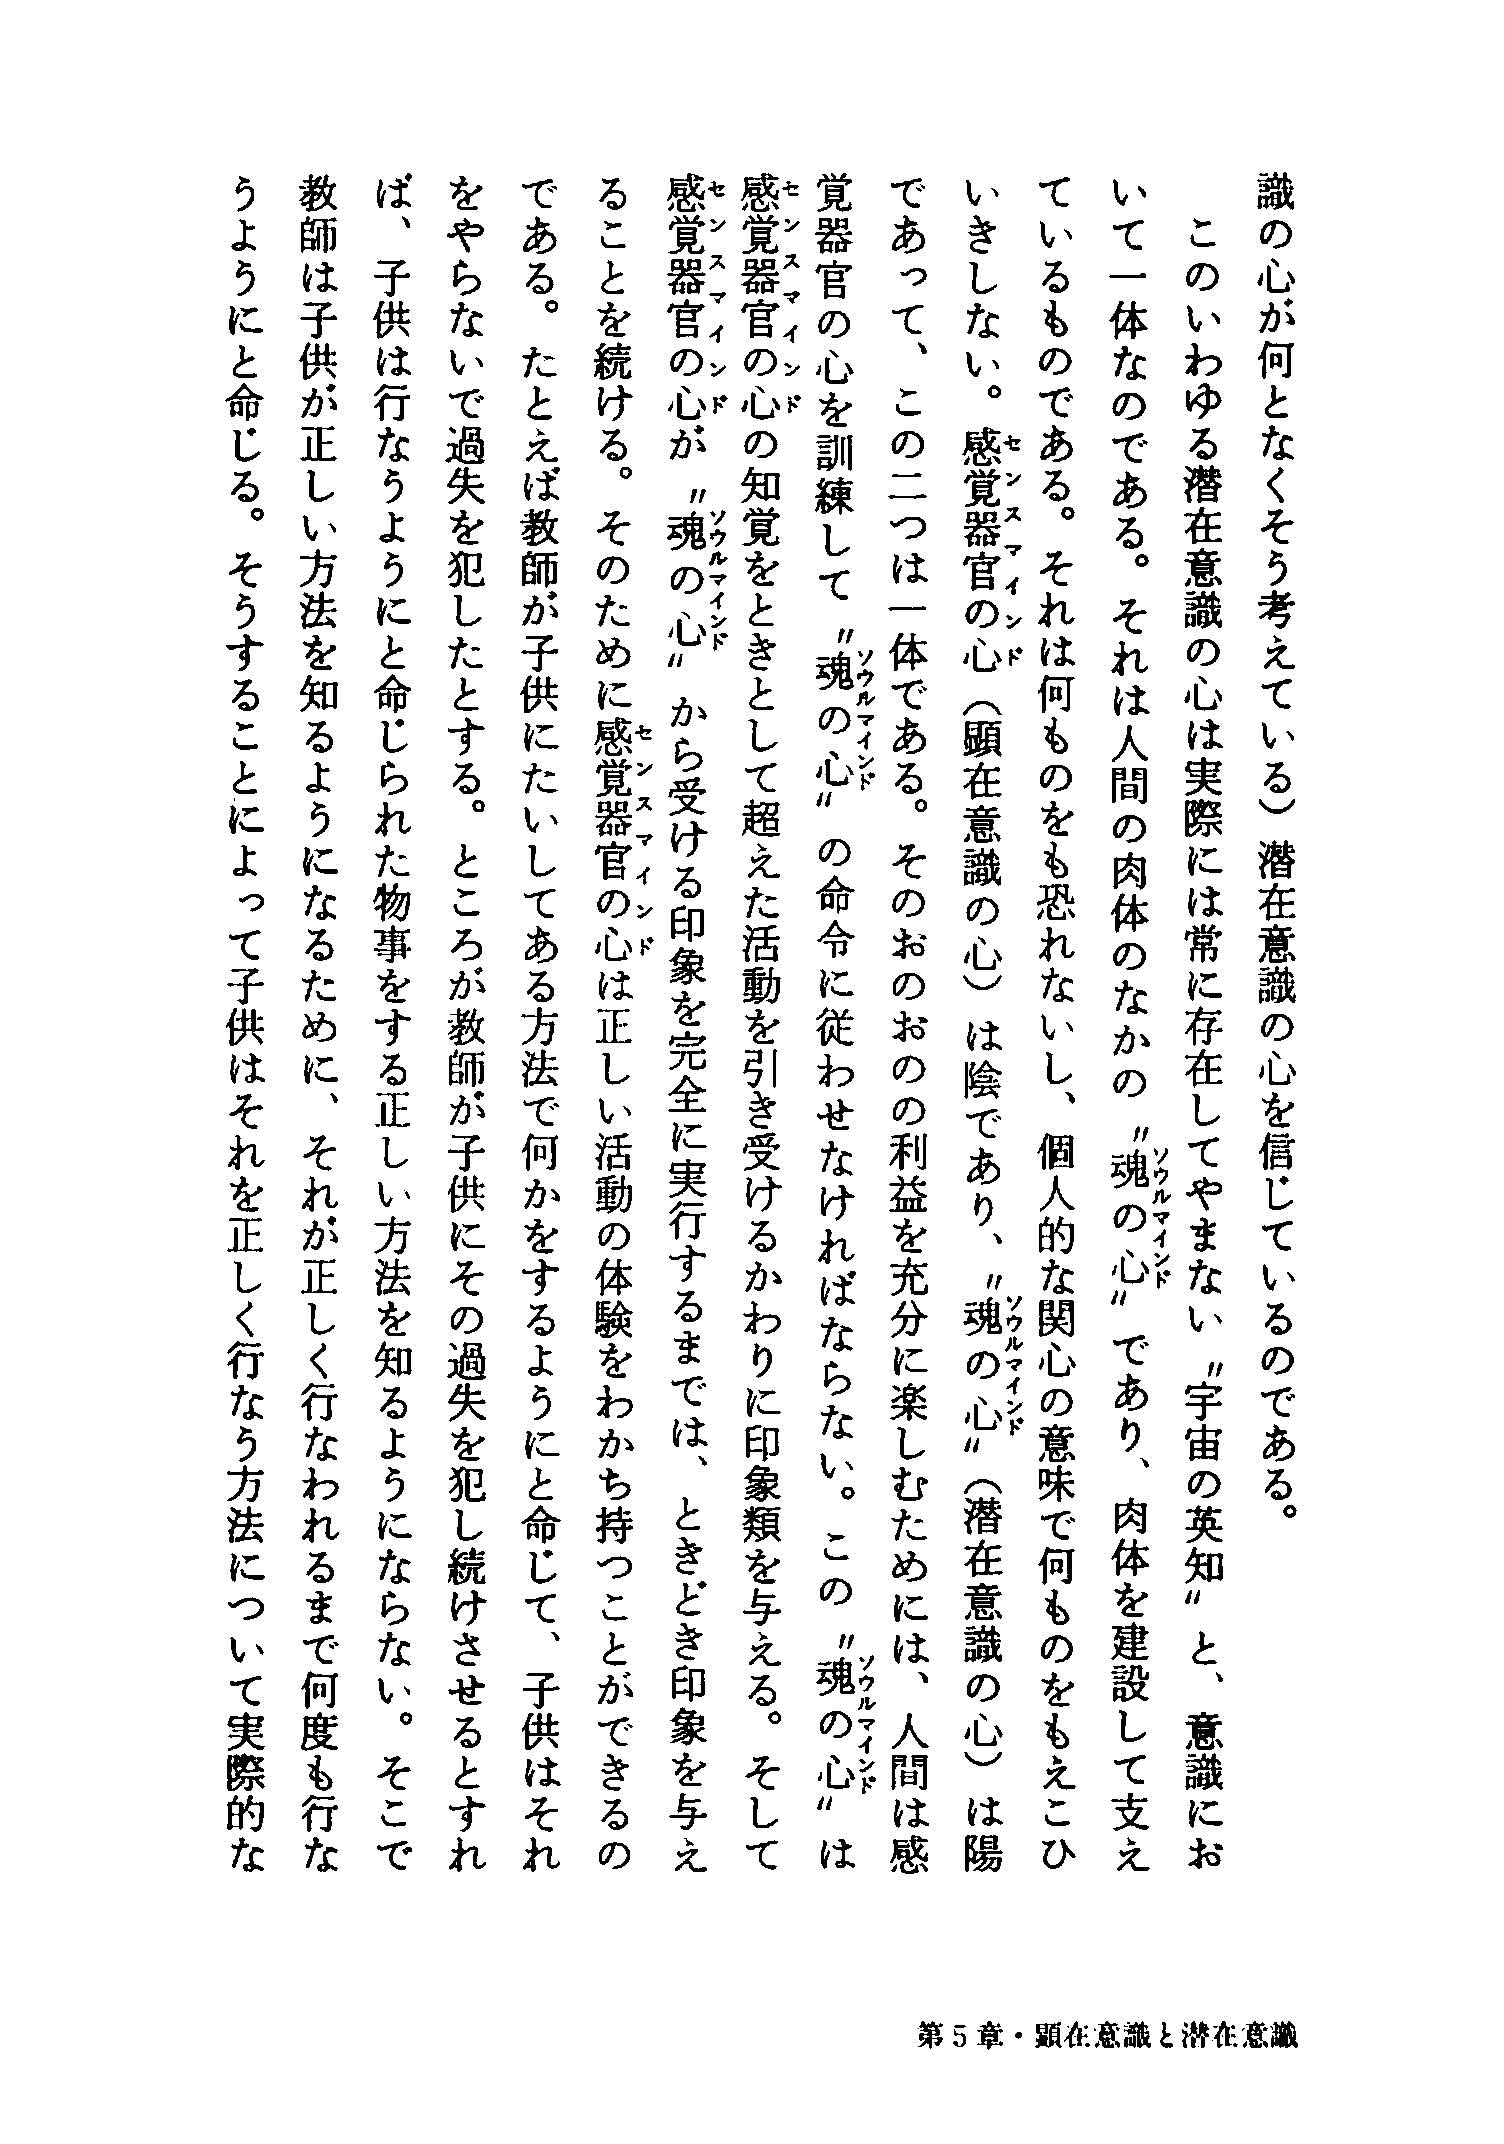 識の心が何となくそう考えている）潜在意識の心を信じているのである。
　このいわゆる潜在意識の心は実際には常に存在してやまない〝宇宙の英知〟と、意識にお
いて一体なのである。それは人間の肉体のなかの〝魂の心〟であり、肉体を建設して支え
ソウルマインド
ているものである。それは何ものをも恐れないし、個人的な関心の意味で何ものをもえこひ
いきしない。感覚器官の心（顕在意識の心）は陰であり、〝魂の心〟（潜在意識の心）は陽
センスマインド　ソウルマインド
であって、この二つは一体である。そのおのおのの利益を充分に楽しむためには、人間は感
覚器官の心を訓練して〝魂の心〟の命令に従わせなければならない。この〝魂の心〟は
ソウルマインド　ソウルマインド
感覚器官の心の知覚をときとして超えた活動を引き受けるかわりに印象類を与える。そして
センスマインド
感覚器官の心が〝魂の心〟から受ける印象を完全に実行するまでは、ときどき印象を与え
センスマインド　ソウルマインド
ることを続ける。そのために感覚器官の心は正しい活動の体験をわかち持つことができるの
センスマインド
である。たとえば教師が子供にたいしてある方法で何かをするようにと命じて、子供はそれ
をやらないで過失を犯したとする。ところが教師が子供にその過失を犯し続けさせるとすれ
ば、子供は行なうようにと命じられた物事をする正しい方法を知るようにならない。そこで
教師は子供が正しい方法を知るようになるために、それが正しく行なわれるまで何度も行な
うようにと命じる。そうすることによって子供はそれを正しく行なう方法について実際的な
第5章・顕在意識と潜在意識